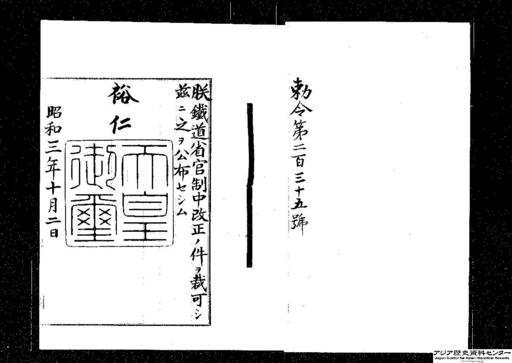 勅令第二百三十五號
朕鐵道省官制中改正ノ件ヲ裁可シ
茲ニ之ヲ公布セシム
裕仁
天皇
御璽
昭和三年十月二日
アジア歴史資料センター
Japan Center for Asian Historical Records